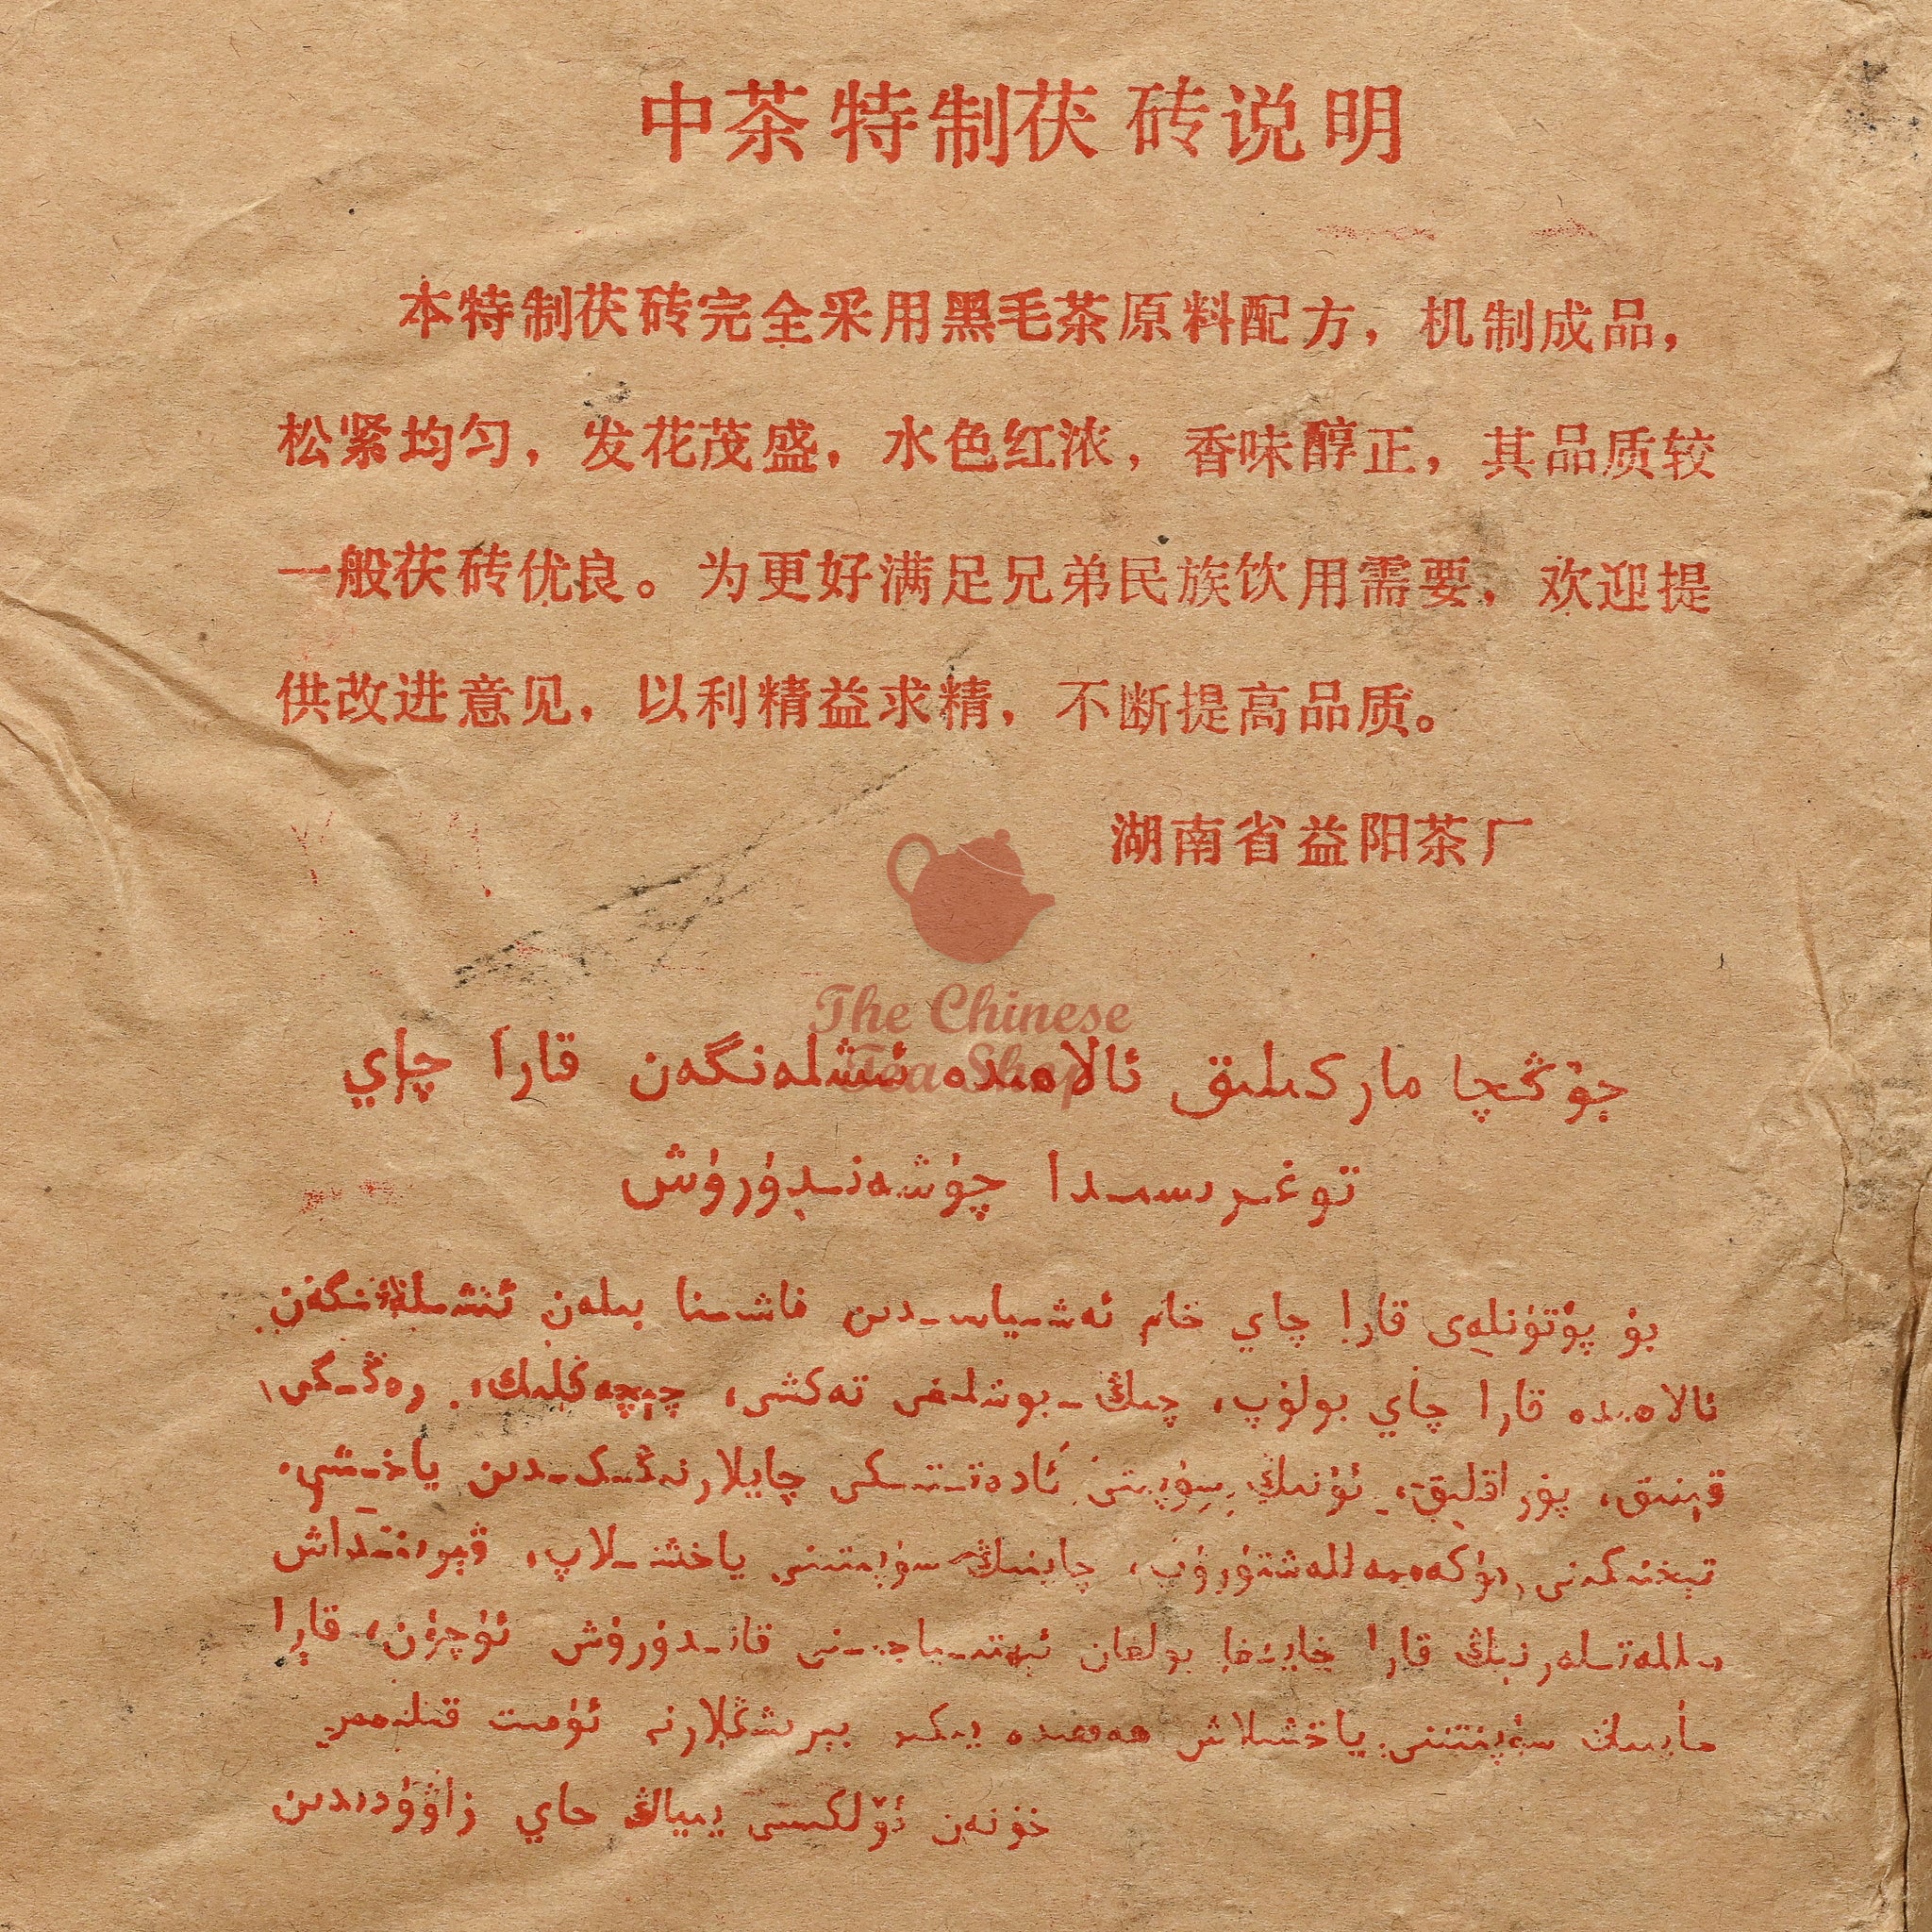 中茶特制茯砖说明
本特制茯砖完全采用黑毛茶原料配方，机制成品，
松紧均匀，发花茂盛，水色红浓，香味醇正，其品质较
一般茯砖优良。为更好满足兄弟民族饮用需要，欢迎提
供改进意见，以利精益求精，不断提高品质。
湖南省益阳茶厂
The Chinese
Tea Shop
جۇڭچا ماركىلىق ئالاھىدە ئىشلەنگەن قارا چاي
توغرىسىدا چۈشەندۈرۈش
بۇ قارا چاي خام ئەشىياسىدىن بىلەن ئىشلەنگەن
ئالاھىدە قارا چاي بولۇپ، چىڭ-بوشلىغى تەكشى، رەڭگى
قېنىق، پۇراقلىق، ئۇنىڭ سۈپىتى ئادەتتىكى چايلارنىڭكىدىن ياخشى.
چاينىڭ سۈپىتىنى ياخشىلاپ، قېرىنداش
مىللەتلەرنىڭ قارا چايغا بولغان ئېھتىياجىنى قاندۇرۇش ئۈچۈن، قارا
چاينىڭ سۈپىتىنى ياخشىلاش ھەققىدە پىكىر بېرىشىڭلارنى ئۈمىت قىلىمىز.
خۇنەن ئۆلكىسى يىياڭ چاي زاۋۇدىدىن